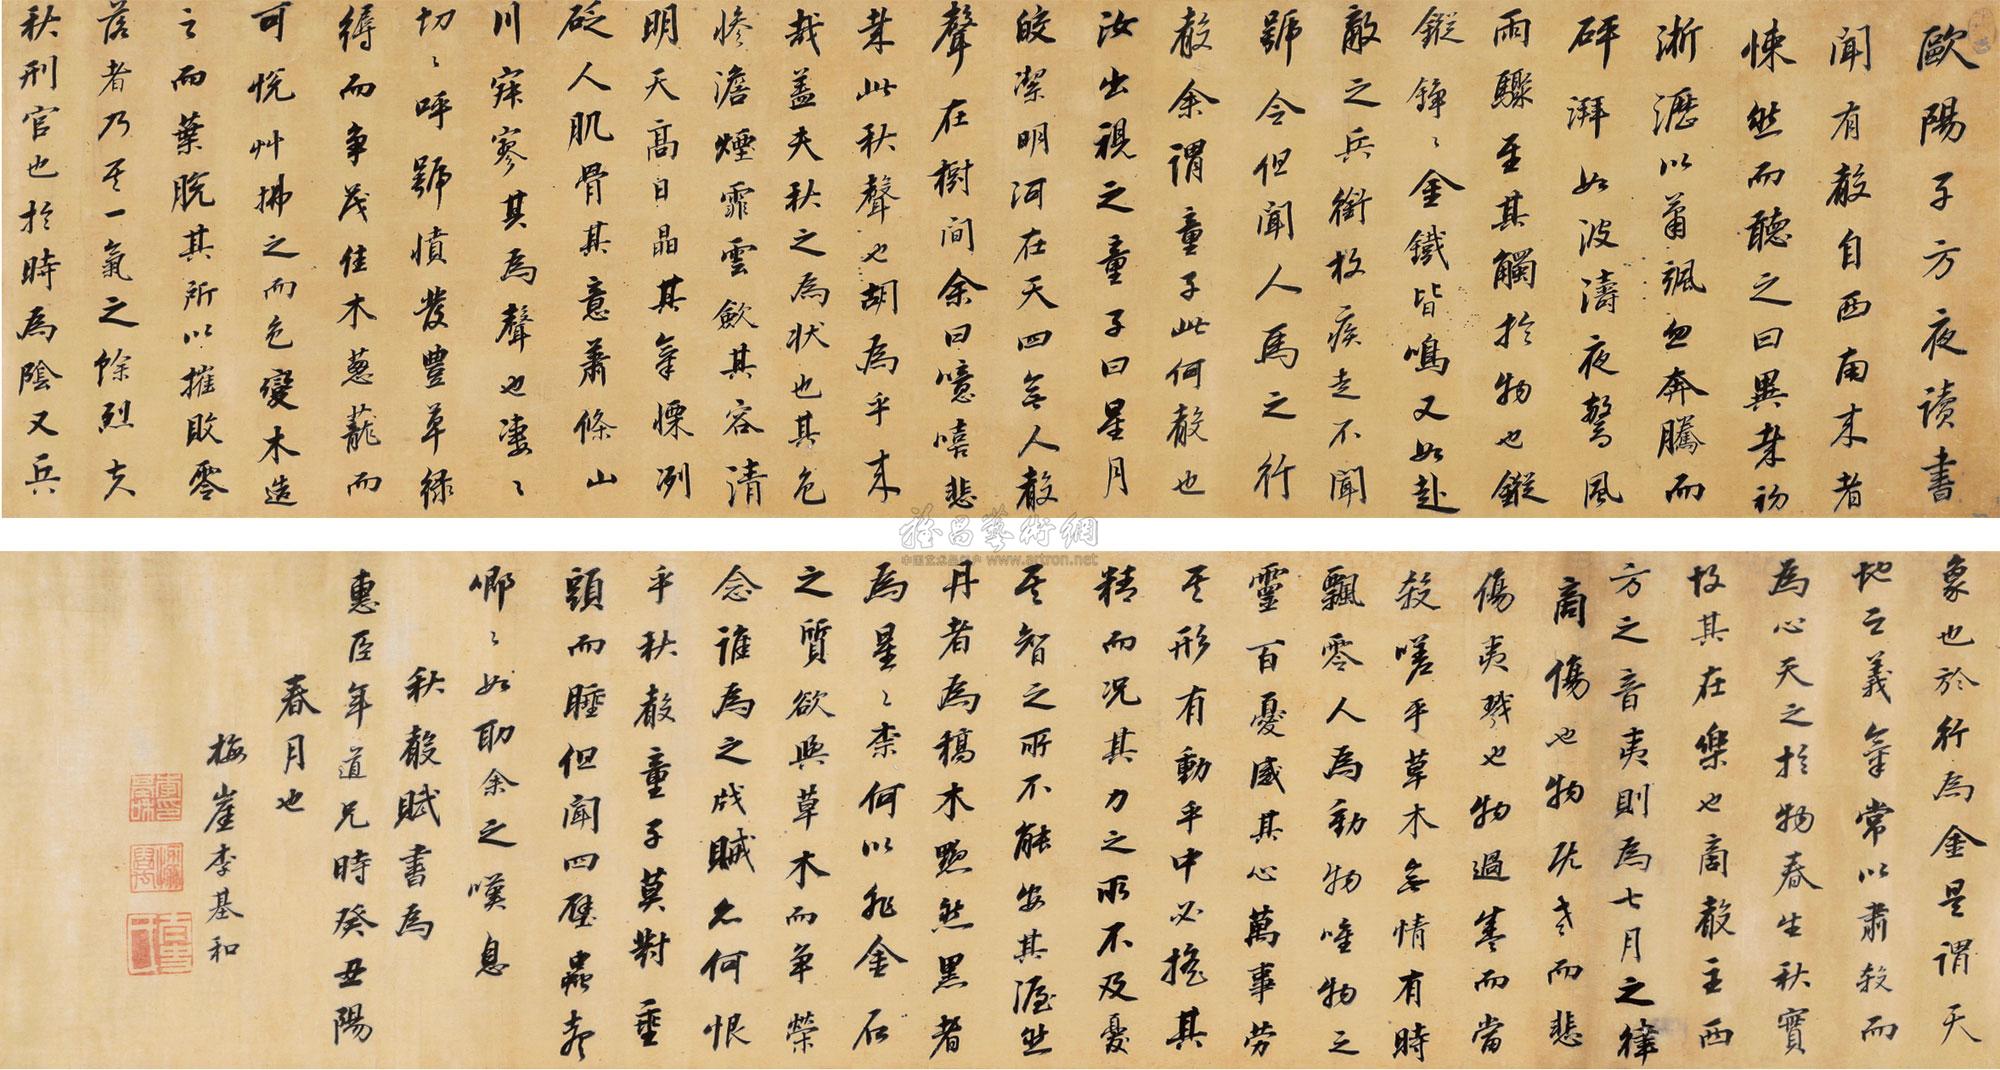 歐陽子方夜讀書
聞有聲自西南來者
悚然而聽之曰異哉初
淅瀝以蕭颯忽奔騰而
砰湃如波濤夜驚風
雨驟至其觸於物也鏦
鏦錚〻金鐵皆鳴又如赴
敵之兵銜枚疾走不聞
號令但聞人馬之行
聲余謂童子此何聲也
汝出視之童子曰星月
皎潔明河在天四無人聲
聲在樹間余曰噫嘻悲
哉此秋聲也胡為乎來
哉蓋夫秋之為狀也其色
慘澹煙霏雲斂其容清
明天高日晶其氣慄冽
砭人肌骨其意蕭條山
川寂寥其為聲也淒〻
切〻呼號憤發豐草綠
縟而爭茂佳木蔥蘢而
可悅艸拂之而色變木遭
之而葉脫其所以摧敗零
落者乃其一氣之餘烈夫
秋刑官也於時為陰又兵
象也於行為金是謂天
地之義氣常以肅殺而
為心天之於物春生秋實
故其在樂也商聲主西
方之音夷則為七月之律
商傷也物既老而悲
傷夷戮也物過盛而當
殺嗟乎草木無情有時
飄零人為動物唯物之
靈百憂感其心萬事勞
其形有動乎中必搖其
精而況其力之所不及憂
其智之所不能宜其渥然
丹者為槁木黟然黑者
為星〻柰何以非金石
之質欲與草木而爭榮
念誰為之戕賊亦何恨
乎秋聲童子莫對垂
頭而睡但聞四壁蟲聲
唧〻如助余之嘆息
秋聲賦書為
惠臣年道兄時癸丑陽
春月也
梅崖李基和